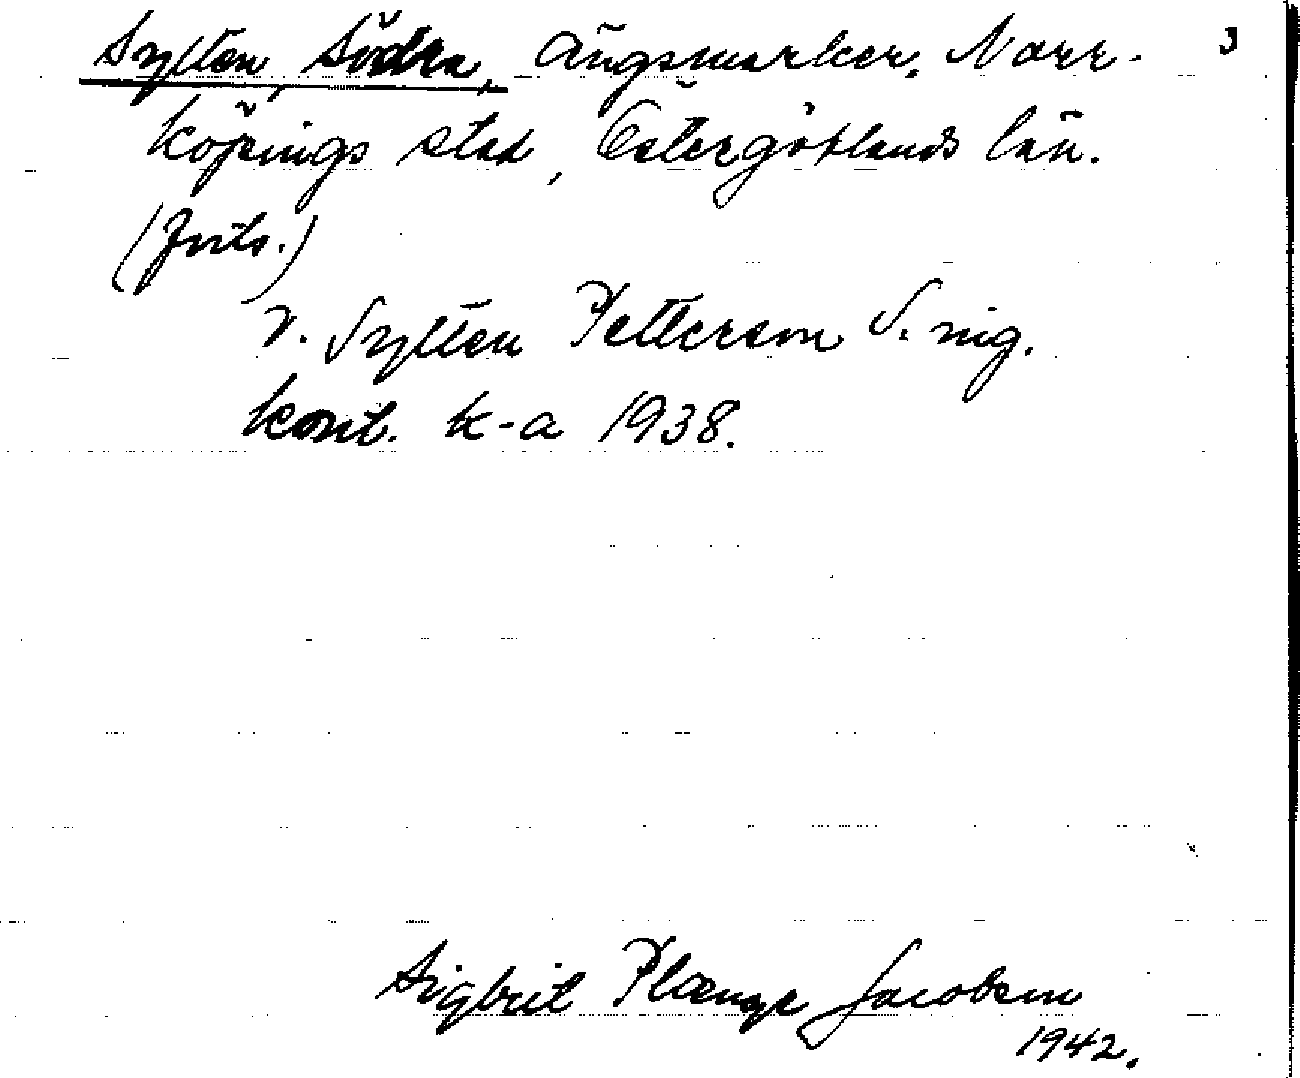 Sylten, Södra, Ängsmarker, Norr- 3
köpings stad, Östergötlands län.
(forts.)
v. Sylten Petterson S. nig.
kont. k-a 1938.
Sigbrit Plænge Jacobson
1942.